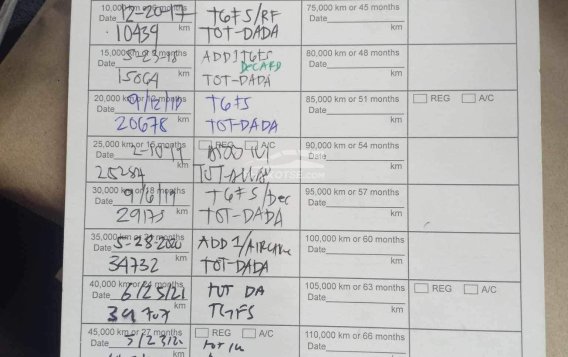 10,000 km or 6 months
Date 12-20-17
10439 km
TGFS/RF
TOT-DADA
75,000 km or 45 months
Date
km
15,000 km or 9 months
Date 5-23-18
15064 km
ADD1TGFS
DECARB
TOT-DADA
80,000 km or 48 months
Date
km
20,000 km or 12 months
Date 9/12/18
20678 km
TGFS
TOT-DADA
85,000 km or 51 months
Date
km
REG A/C
25,000 km or 15 months
Date 2-10-19
km
REG A/C
90,000 km or 54 months
Date
km
30,000 km or 18 months
Date 9/6/19
29175 km
TGFS/Dec
TOT-DADA
95,000 km or 57 months
Date
km
35,000 km or 21 months
Date 5-28-2020
34732 km
TOT-DADA
100,000 km or 60 months
Date
km
40,000 km or 24 months
Date 6/25/21
39707 km
TOT DA
TGFS
105,000 km or 63 months
Date
km
REG A/C
45,000 km or 27 months
Date
km
REG A/C
110,000 km or 66 months